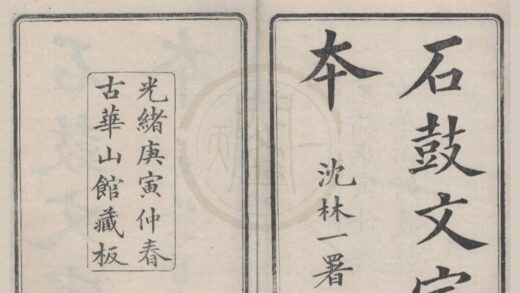 石鼓文
本
沈林一署
光緒庚寅仲春
古華山館藏板